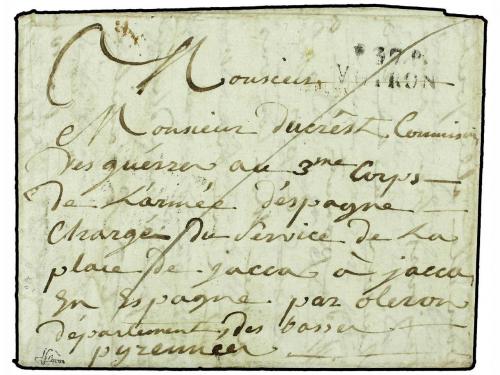 Monsieur
P.37.P.
VOIRON
Monsieur ducrest, Commissre
Des guérres au 3me Corps
de L'armée d'espagne
Chargé du Service de La
place de jacca à jacca
En Espagne par oleron
département des basses
pyrennées